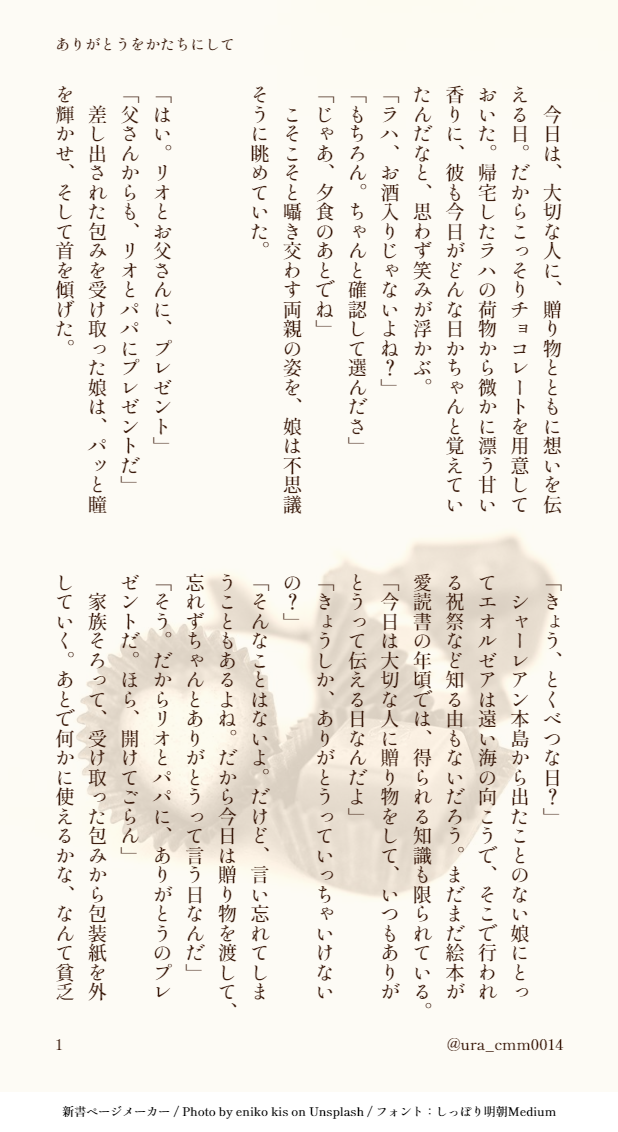 ありがとうをかたちにして
　今日は、大切な人に、贈り物とともに想いを伝
える日。だからこっそりチョコレートを用意して
おいた。帰宅したラハの荷物から微かに漂う甘い
香りに、彼も今日がどんな日かちゃんと覚えてい
たんだなと、思わず笑みが浮かぶ。
「ラハ、お酒入りじゃないよね？」
「もちろん。ちゃんと確認して選んださ」
「じゃあ、夕食のあとでね」
　こそこそと囁き交わす両親の姿を、娘は不思議
そうに眺めていた。
「はい。リオとお父さんに、プレゼント」
「父さんからも、リオとパパにプレゼントだ」
　差し出された包みを受け取った娘は、パッと瞳
を輝かせ、そして首を傾げた。
「きょう、とくべつな日？」
　シャーレアン本島から出たことのない娘にとっ
てエオルゼアは遠い海の向こうで、そこで行われ
る祝祭など知る由もないだろう。まだまだ絵本が
愛読書の年頃では、得られる知識も限られている。
「今日は大切な人に贈り物をして、いつもありが
とうって伝える日なんだよ」
「きょうしか、ありがとうっていっちゃいけない
の？」
「そんなことはないよ。だけど、言い忘れてしま
うこともあるよね。だから今日は贈り物を渡して、
忘れずちゃんとありがとうって言う日なんだ」
「そう。だからリオとパパに、ありがとうのプレ
ゼントだ。ほら、開けてごらん」
　家族そろって、受け取った包みから包装紙を外
していく。あとで何かに使えるかな、なんて貧乏
1
@ura_cmm0014
新書ページメーカー / Photo by eniko kis on Unsplash / フォント：しっぽり明朝Medium